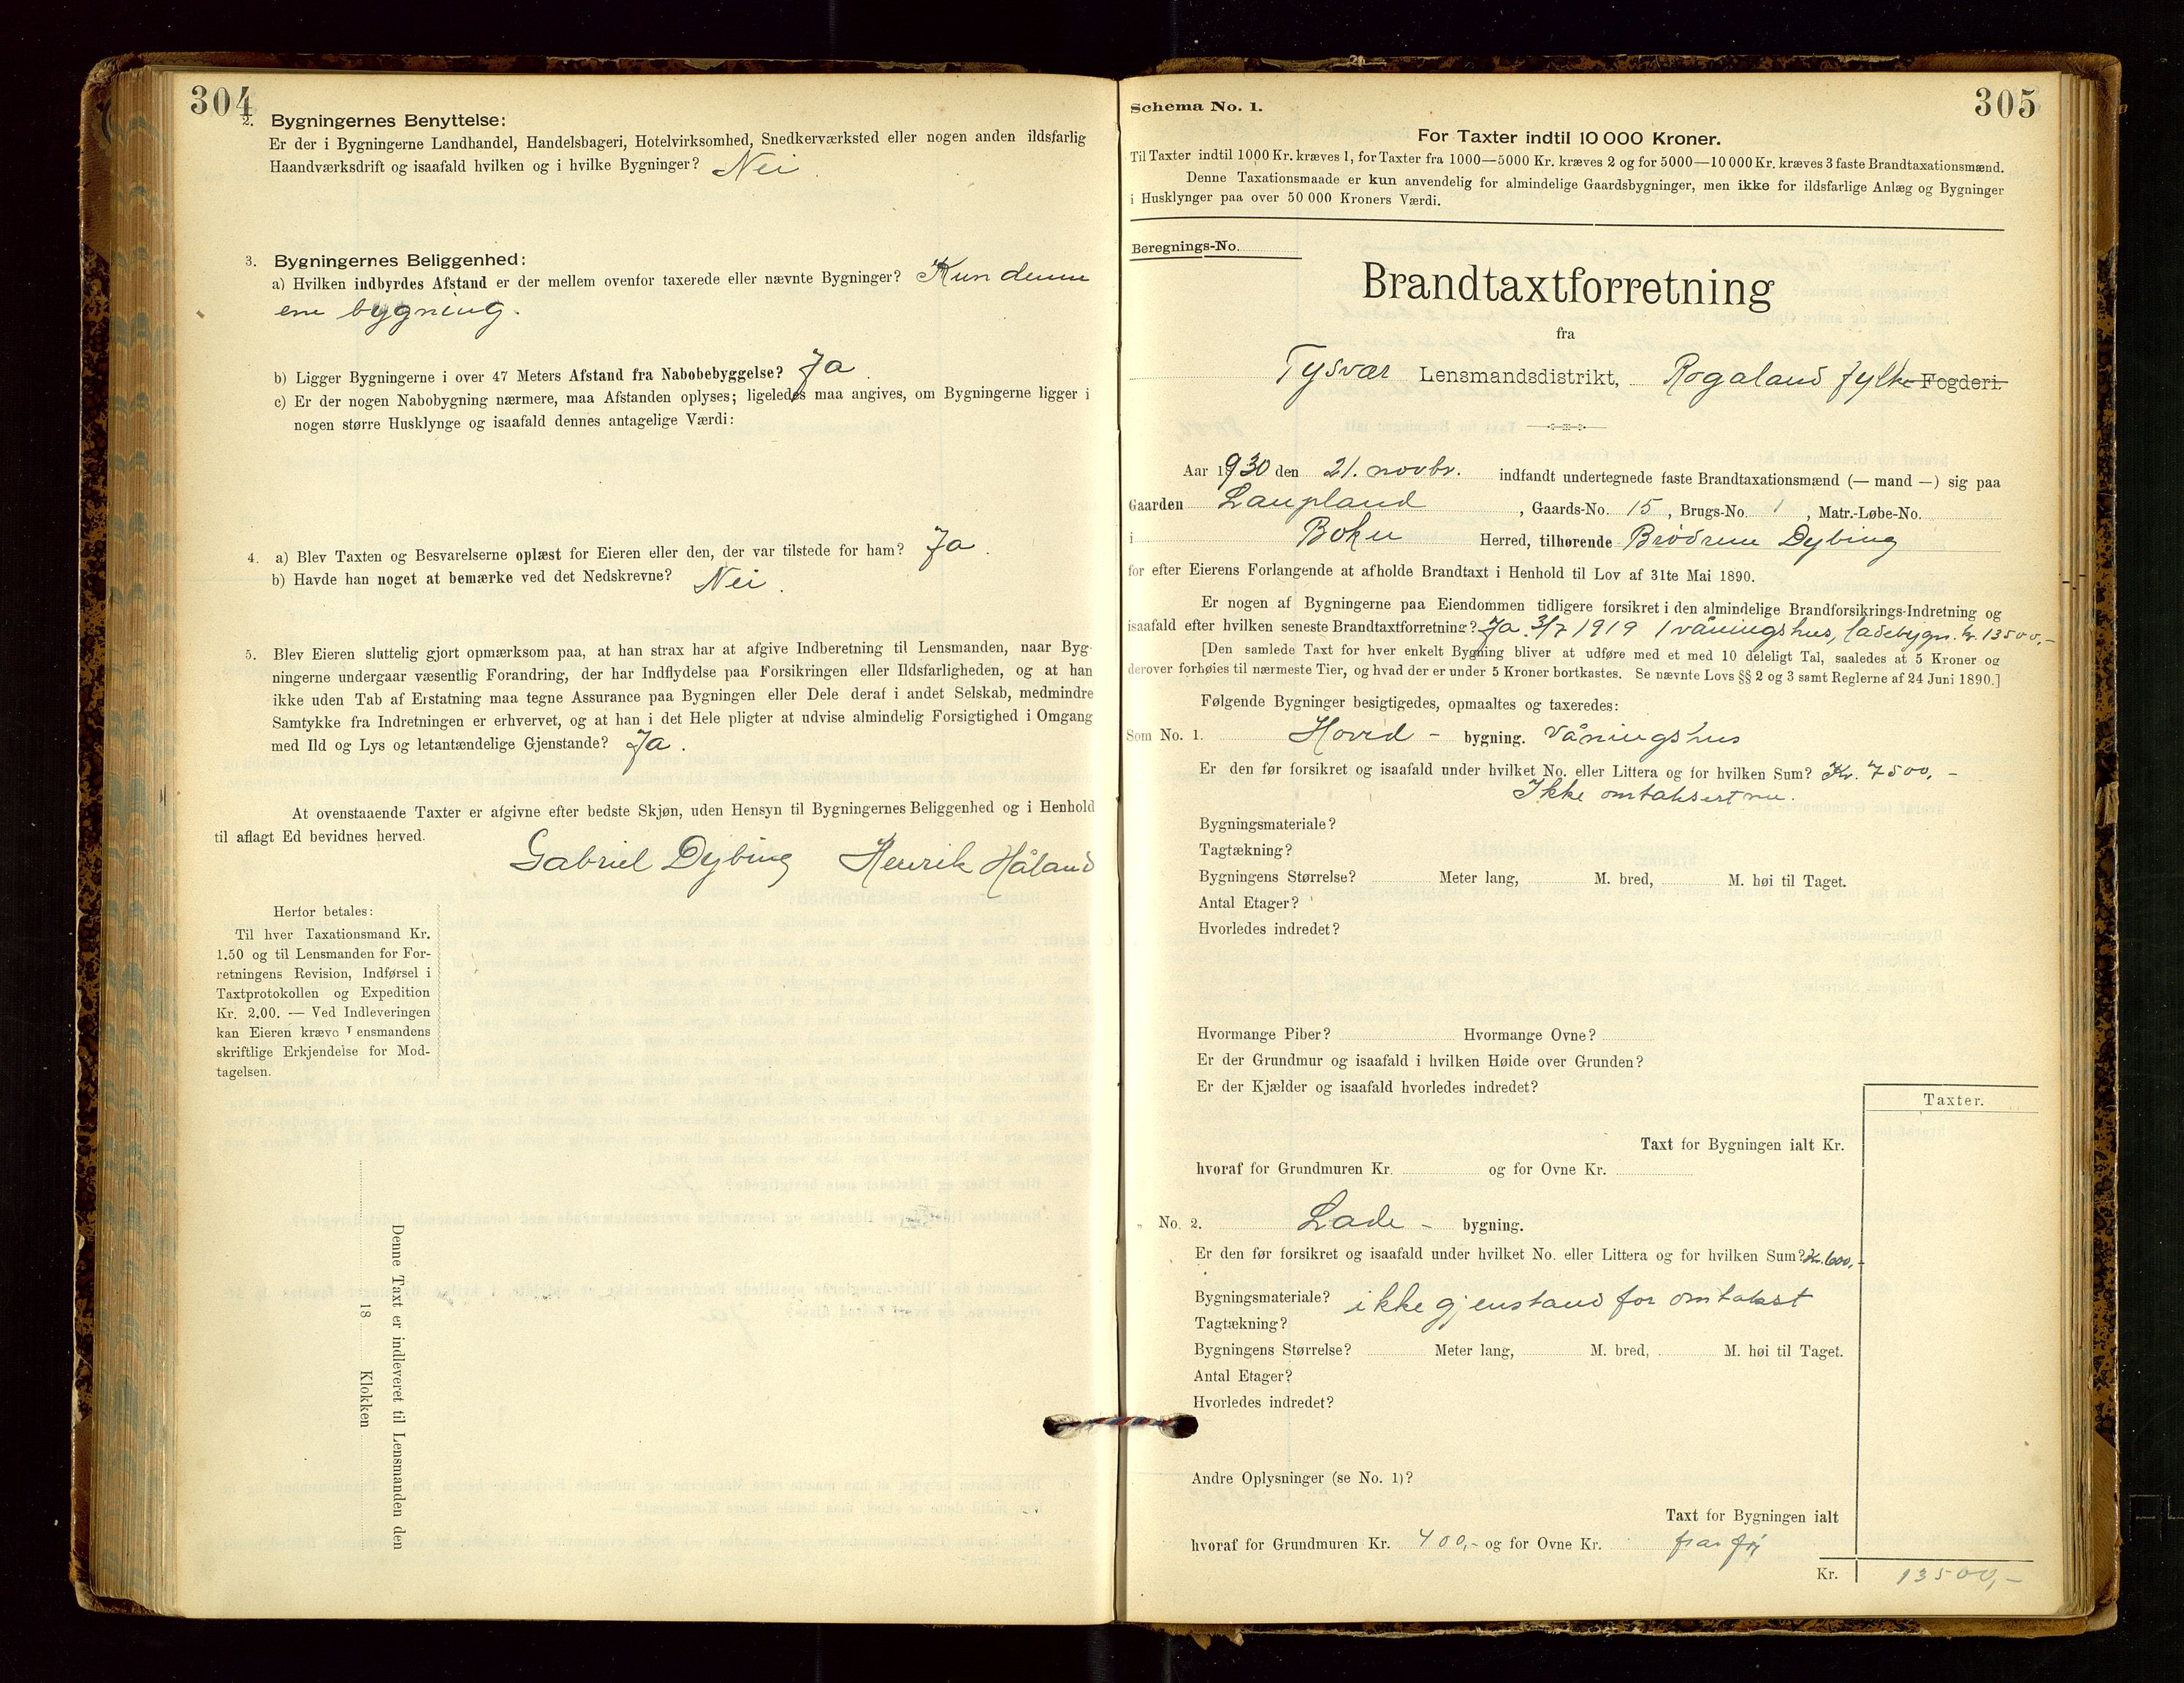 304
2. Bygningernes Benyttelse:
Er der i Bygningerne Landhandel, Handelsbageri, Hotelvirksomhed, Snedkerværksted eller nogen anden ildsfarlig
Haandværksdrift og isaafald hvilken og i hvilke Bygninger? Nei.
3. Bygningernes Beliggenhed:
a) Hvilken indbyrdes Afstand er der mellem ovenfor taxerede eller nævnte Bygninger? Kun denne
ene bygning.
b) Ligger Bygningerne i over 47 Meters Afstand fra Nabobebyggelse? Ja.
c) Er der nogen Nabobygning nærmere, maa Afstanden oplyses; ligeledes maa angives, om Bygningerne ligger i
nogen større Husklynge og isaafald dennes antagelige Værdi:
4. a) Blev Taxten og Besvarelserne oplæst for Eieren eller den, der var tilstede for ham? Ja.
b) Havde han noget at bemærke ved det Nedskrevne? Nei.
5. Blev Eieren sluttelig gjort opmærksom paa, at han strax har at afgive Indberetning til Lensmanden, naar Byg-
ningerne undergaar væsentlig Forandring, der har Indflydelse paa Forsikringen eller Ildsfarligheden, og at han
ikke uden Tab af Erstatning maa tegne Assurance paa Bygningen eller Dele deraf i andet Selskab, medmindre
Samtykke fra Indretningen er erhvervet, og at han i det Hele pligter at udvise almindelig Forsigtighed i Omgang
med Ild og Lys og letantændelige Gjenstande? Ja.
At ovenstaaende Taxter er afgivne efter bedste Skjøn, uden Hensyn til Bygningernes Beliggenhed og i Henhold
til aflagt Ed bevidnes herved.
Gabriel Dybing Henrik Håland
Herfor betales:
Til hver Taxationsmand Kr.
1.50 og til Lensmanden for For-
retningens Revision, Indførsel i
Taxtprotokollen og Expedition
Kr. 2.00. — Ved Indleveringen
kan Eieren kræve Lensmandens
skriftlige Erkjendelse for Mod-
tagelsen.
Denne Taxt er indleveret til Lensmanden den
18 Klokken
305
Schema No. 1.
For Taxter indtil 10 000 Kroner.
Til Taxter indtil 1000 Kr. kræves 1, for Taxter fra 1000—5000 Kr. kræves 2 og for 5000—10 000 Kr. kræves 3 faste Brandtaxationsmænd.
Denne Taxationsmaade er kun anvendelig for almindelige Gaardsbygninger, men ikke for ildsfarlige Anlæg og Bygninger
i Husklynger paa over 50 000 Kroners Værdi.
Beregnings-No.
Brandtaxtforretning
fra
Tysvær Lensmandsdistrikt, Rogaland fylke Fogderi.
Aar 1930 den 21. novbr. indfandt undertegnede faste Brandtaxationsmænd (— mand —) sig paa
Gaarden Laupland, Gaards-No. 15, Brugs-No. 1, Matr.-Løbe-No.
i Bokn Herred, tilhørende Brødrene Dybing
for efter Eierens Forlangende at afholde Brandtaxt i Henhold til Lov af 31te Mai 1890.
Er nogen af Bygningerne paa Eiendommen tidligere forsikret i den almindelige Brandforsikrings-Indretning og
isaafald efter hvilken seneste Brandtaxtforretning? Ja. 3/7 1919 1 våningshus, ladebygn. kr. 13500,-
[Den samlede Taxt for hver enkelt Bygning bliver at udføre med et med 10 deleligt Tal, saaledes at 5 Kroner og
derover forhøies til nærmeste Tier, og hvad der er under 5 Kroner bortkastes. Se nævnte Lovs §§ 2 og 3 samt Reglerne af 24 Juni 1890.]
Følgende Bygninger besigtigedes, opmaaltes og taxeredes:
Som No. 1. Hoved - bygning. våningshus
Er den før forsikret og isaafald under hvilket No. eller Littera og for hvilken Sum? Kr. 7500,-
Ikke omtaksert nu.
Bygningsmateriale?
Tagtækning?
Bygningens Størrelse? Meter lang, M. bred, M. høi til Taget.
Antal Etager?
Hvorledes indredet?
Hvormange Piber? Hvormange Ovne?
Er der Grundmur og isaafald i hvilken Høide over Grunden?
Er der Kjælder og isaafald hvorledes indredet?
Taxter.
Taxt for Bygningen ialt Kr.
hvoraf for Grundmuren Kr. og for Ovne Kr.
„ No. 2. Lade - bygning.
Er den før forsikret og isaafald under hvilket No. eller Littera og for hvilken Sum? Kr. 600,-
Bygningsmateriale? ikke gjenstand for omtakst
Tagtækning?
Bygningens Størrelse? Meter lang, M. bred, M. høi til Taget.
Antal Etager?
Hvorledes indredet?
Andre Oplysninger (se No. 1)?
Taxt for Bygningen ialt
hvoraf for Grundmuren Kr. 400,- og for Ovne Kr.
Kr. 13500,-